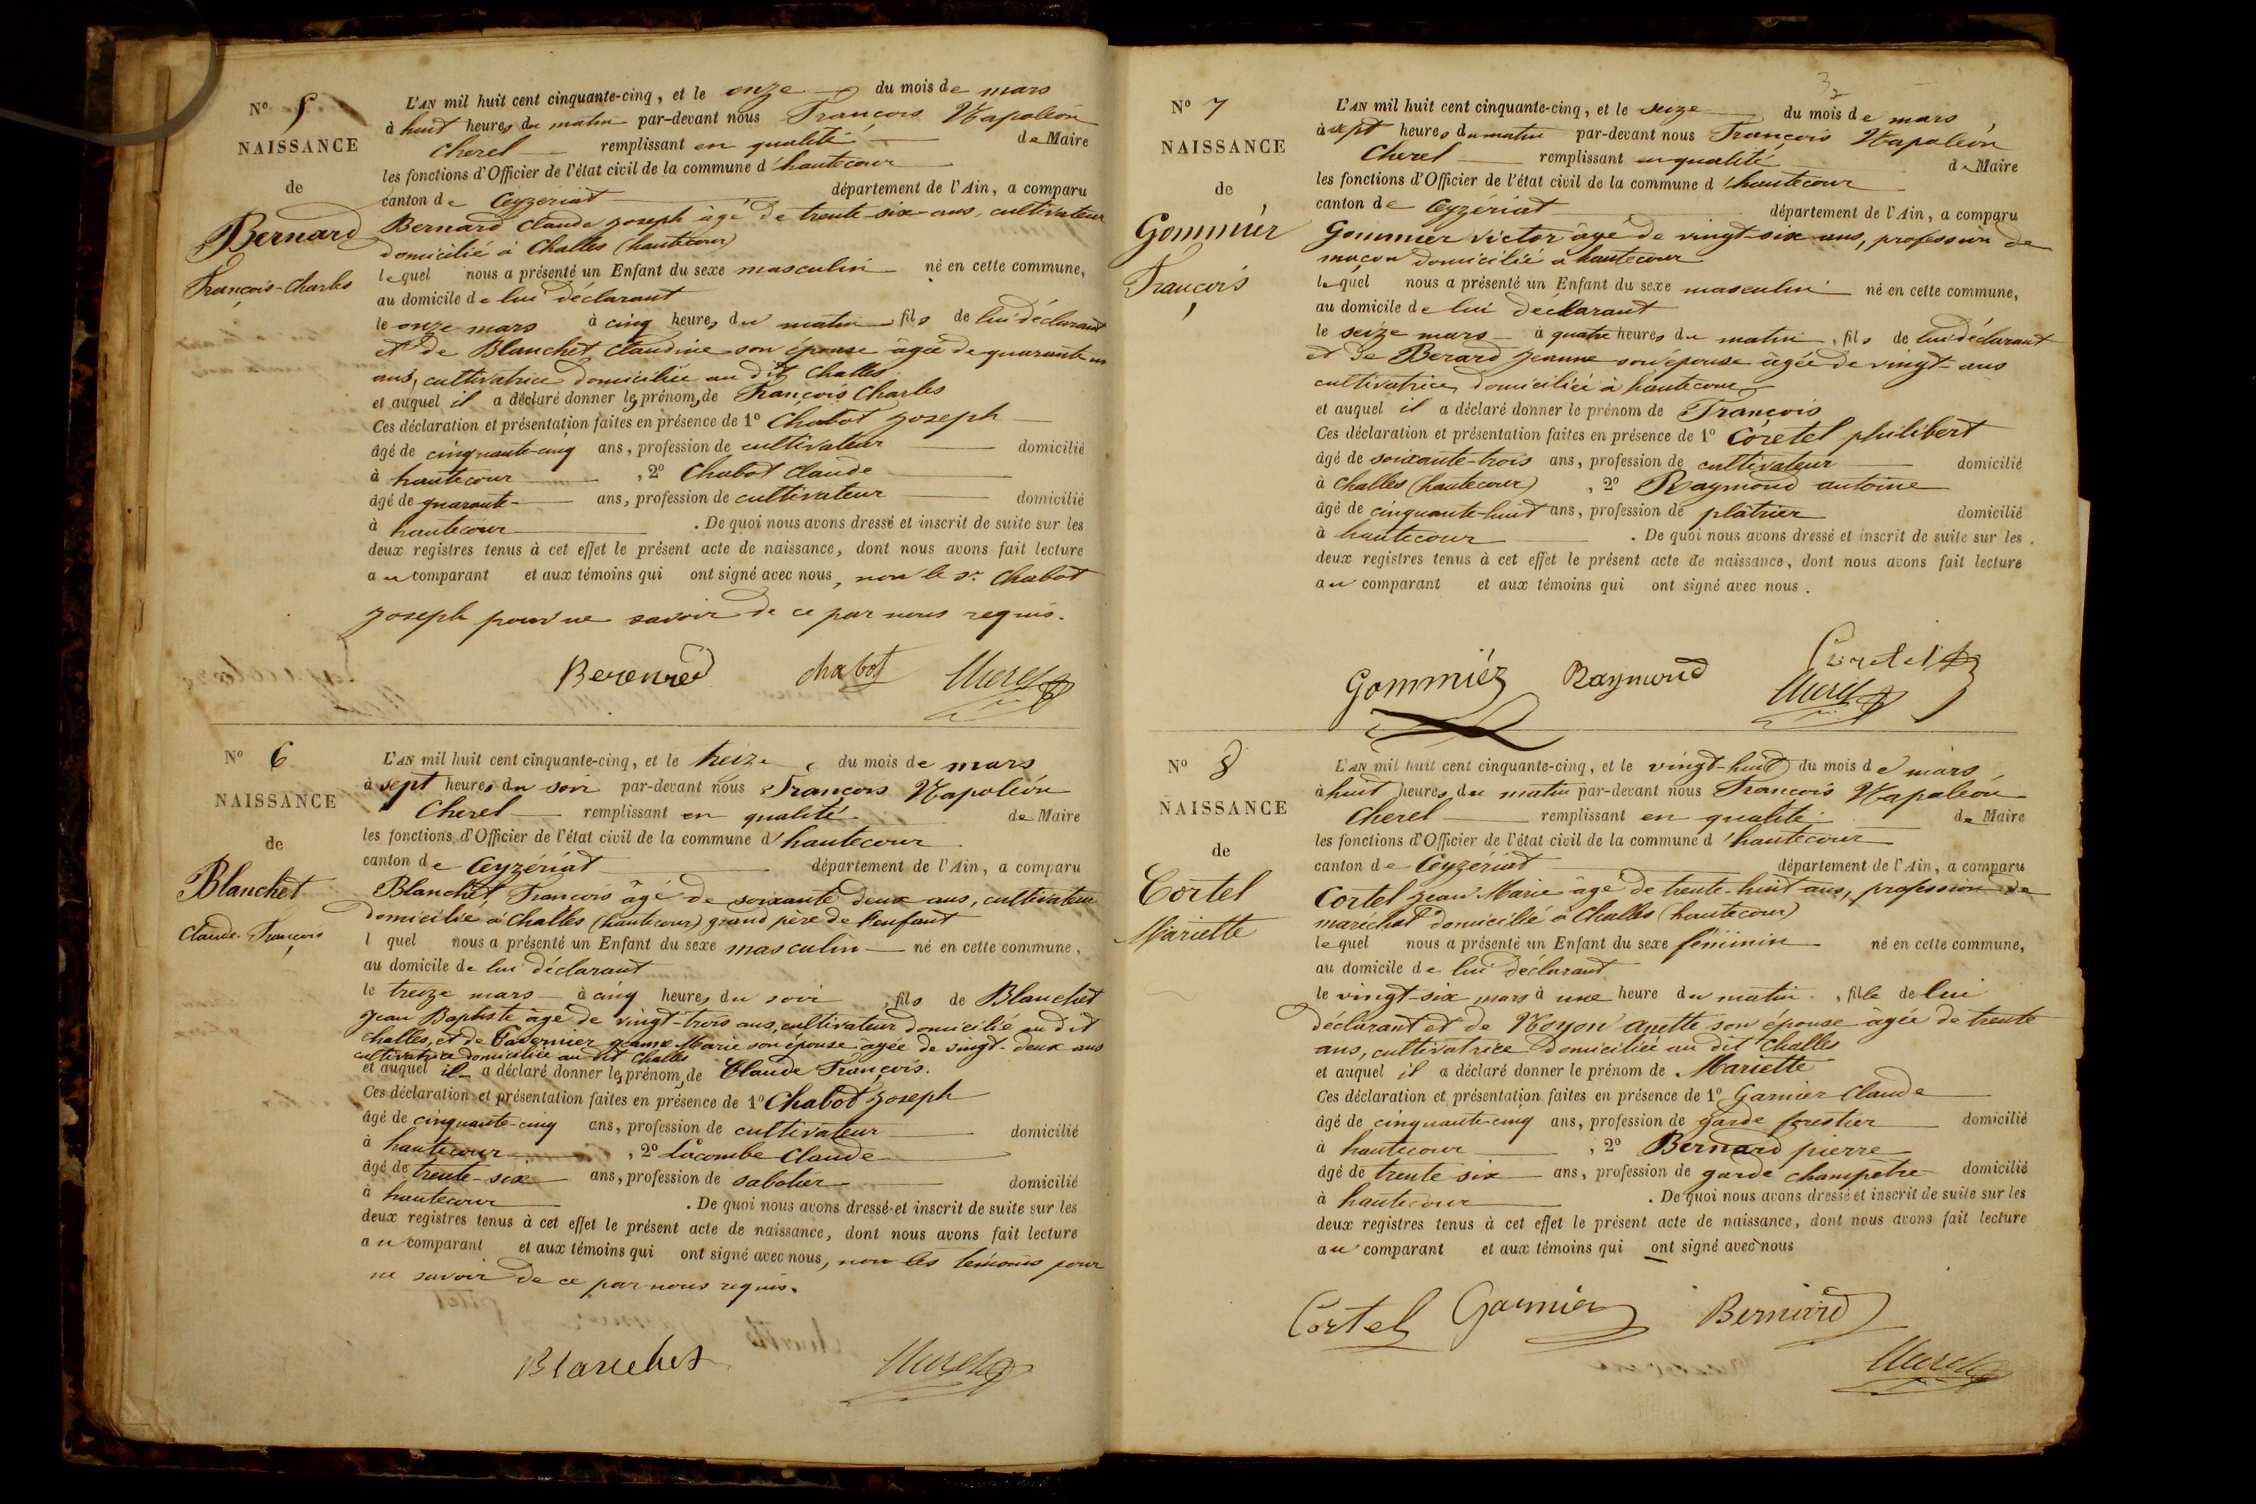 N° 5
NAISSANCE
de
Bernard
François-Charles
L'AN mil huit cent cinquante-cinq, et le onze du mois de mars
à huit heures du matin par-devant nous François Napoléon
Cherel remplissant en qualité de Maire
les fonctions d'Officier de l'état civil de la commune d'hautecour
canton de Ceyzériat département de l'Ain, a comparu
Bernard Claude Joseph âgé de trente-six ans, cultivateur
domicilié à Challes (hautecour)
lequel nous a présenté un Enfant du sexe masculin né en cette commune,
au domicile de lui déclarant
le onze mars à cinq heures du matin fils de lui déclarant
et de Blanchet Claudine son épouse âgée de quarante un
ans, cultivatrice domiciliée au dit Challes
et auquel il a déclaré donner les prénoms de François Charles
Ces déclaration et présentation faites en présence de 1° Chabot Joseph
âgé de cinquante-cinq ans, profession de cultivateur domicilié
à hautecour , 2° Chabot Claude
âgé de quarante ans, profession de cultivateur domicilié
à hautecour . De quoi nous avons dressé et inscrit de suite sur les
deux registres tenus à cet effet le présent acte de naissance, dont nous avons fait lecture
au comparant et aux témoins qui ont signé avec nous, non le sr. Chabot
Joseph pour ne savoir de ce par nous requis.
Berenred chabot Cherel
N° 6
NAISSANCE
de
Blanchet
Claude François
L'AN mil huit cent cinquante-cinq, et le treize du mois de mars
à sept heures du soir par-devant nous François Napoléon
Cherel remplissant en qualité de Maire
les fonctions d'Officier de l'état civil de la commune d'hautecour
canton de Ceyzériat département de l'Ain, a comparu
Blanchet François âgé de soixante deux ans, cultivateur
domicilié à Challes (hautecour) grand père de l'enfant
l quel nous a présenté un Enfant du sexe masculin né en cette commune,
au domicile de lui déclarant
le treize mars à cinq heures du soir , fils de Blanchet
Jean Baptiste âgé de vingt-trois ans, cultivateur domicilié au dit
Challes, et de Tavernier Jeanne Marie son épouse âgée de vingt-deux ans
cultivatrice domiciliée au dit Challes
et auquel il a déclaré donner les prénoms de Claude François.
Ces déclaration et présentation faites en présence de 1° Chabot Joseph
âgé de cinquante-cinq ans, profession de cultivateur domicilié
à hautecour , 2° Lacombe Claude
âgé de trente-six ans, profession de sabotier domicilié
à hautecour . De quoi nous avons dressé et inscrit de suite sur les
deux registres tenus à cet effet le présent acte de naissance, dont nous avons fait lecture
au comparant et aux témoins qui ont signé avec nous, non les témoins pour
ne savoir de ce par nous requis.
Blanchet Cherel
N° 7
NAISSANCE
de
Gommier
François
L'AN mil huit cent cinquante-cinq, et le seize du mois de mars
à sept heures du matin par-devant nous François Napoléon
Cherel remplissant en qualité de Maire
les fonctions d'Officier de l'état civil de la commune d'hautecour
canton de Ceyzériat département de l'Ain, a comparu
Gommier Victor âgé de vingt-six ans, profession de
maçon domicilié à hautecour
lequel nous a présenté un Enfant du sexe masculin né en cette commune,
au domicile de lui déclarant
le seize mars à quatre heures du matin, fils de lui déclarant
et de Berard Jeanne son épouse âgée de vingt-ans
cultivatrice, domiciliée à hautecour
et auquel il a déclaré donner le prénom de François
Ces déclaration et présentation faites en présence de 1° Coretel philibert
âgé de soixante-trois ans, profession de cultivateur domicilié
à Challes (hautecour) , 2° Raymond antoine
âgé de cinquante-huit ans, profession de plâtrier domicilié
à hautecour . De quoi nous avons dressé et inscrit de suite sur les
deux registres tenus à cet effet le présent acte de naissance, dont nous avons fait lecture
au comparant et aux témoins qui ont signé avec nous.
Gommier Raymond Cortel
Cherel
N° 8
NAISSANCE
de
Cortel
Mariette
L'AN mil huit cent cinquante-cinq, et le vingt-huit du mois de mars
à huit heures du matin par-devant nous François Napoléon
Cherel remplissant en qualité de Maire
les fonctions d'Officier de l'état civil de la commune d'hautecour
canton de Ceyzériat département de l'Ain, a comparu
Cortel Jean Marie âgé de trente-huit ans, profession de
maréchal domicilié à Challes (hautecour)
lequel nous a présenté un Enfant du sexe féminin né en cette commune,
au domicile de lui déclarant
le vingt-six mars à une heure du matin , fille de lui
déclarant et de Noyon anette son épouse âgée de trente
ans, cultivatrice domiciliée au dit Challes
et auquel il a déclaré donner le prénom de Mariette
Ces déclaration et présentation faites en présence de 1° Garnier Claude
âgé de cinquante-cinq ans, profession de garde forestier domicilié
à hautecour , 2° Bernard pierre
âgé de trente six ans, profession de garde champêtre domicilié
à hautecour . De quoi nous avons dressé et inscrit de suite sur les
deux registres tenus à cet effet le présent acte de naissance, dont nous avons fait lecture
au comparant et aux témoins qui ont signé avec nous
Cortel Garnier Bernard
Cherel